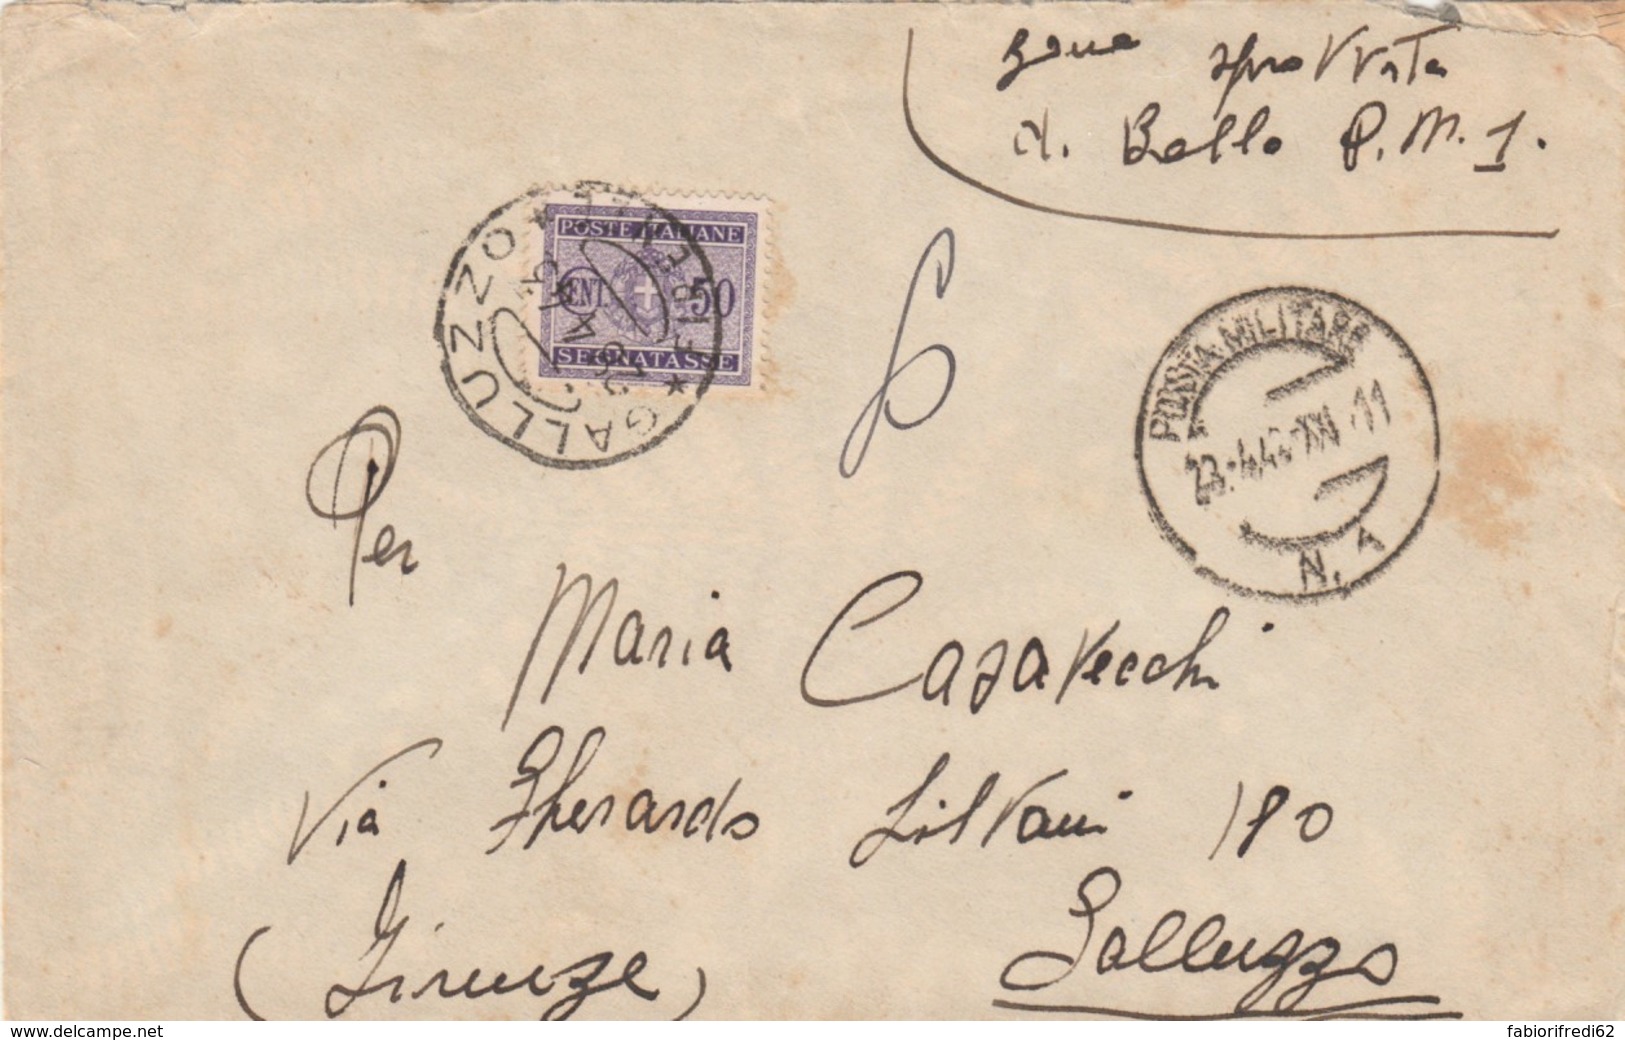 zona sprovvista
di Bollo P.M. 1.
POSTE ITALIANE
CENT. 50
SEGNATASSE
GALLUZZO * FIRENZE *
POSTA MILITARE
23.4.43-XXI 11
N. 1
6
Per
Maria Casavecchi
Via Gherardo Silvani 180
Galluzzo
(Firenze)
www.delcampe.net
fabiorifredi62